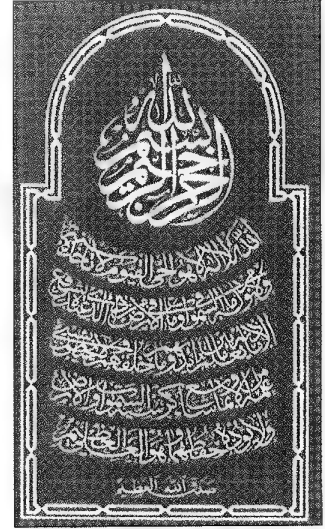 بسم الله الرحمن الرحيم
الله لا إله إلا هو الحي القيوم لا تأخذه سنة
ولا نوم له ما في السموات وما في الأرض من ذا الذي يشفع عنده
إلا بإذنه يعلم ما بين أيديهم وما خلفهم ولا يحيطون بشيء
من علمه إلا بما شاء وسع كرسيه السموات والأرض
ولا يؤده حفظهما وهو العلي العظيم
صدق الله العظيم